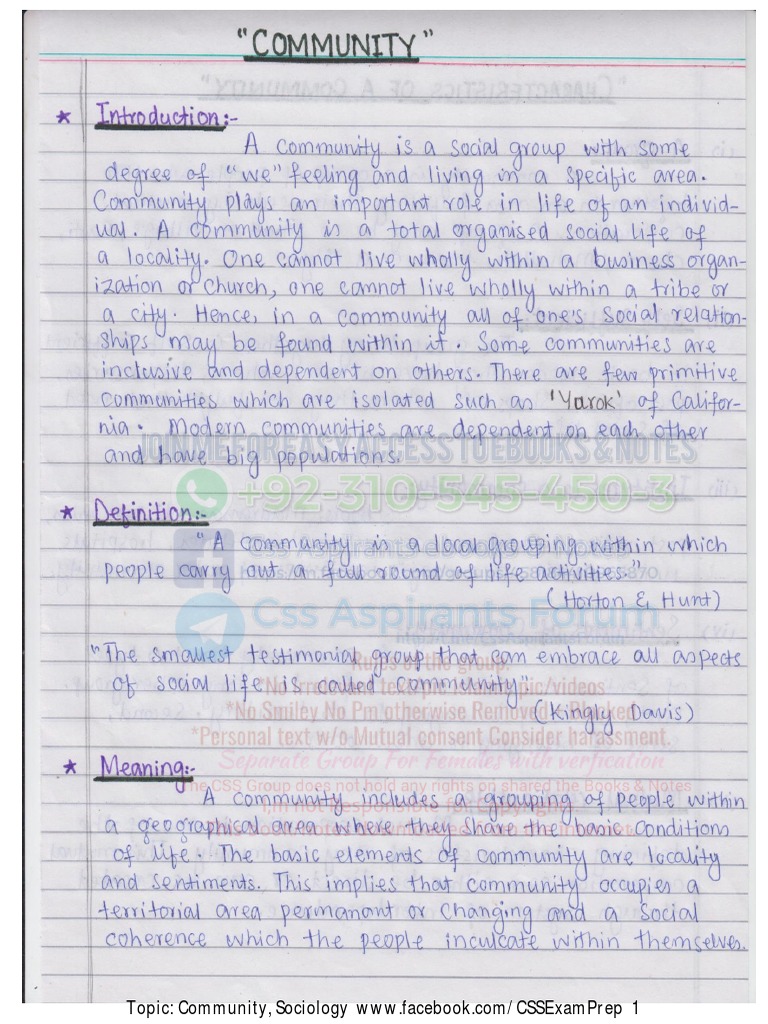 "COMMUNITY"
* Introduction:-
A community is a social group with some
degree of "we" feeling and living in a specific area.
Community plays an important role in life of an individ-
ual. A community is a total organised social life of
a locality. One cannot live wholly within a business organ-
ization or church, one cannot live wholly within a tribe or
a city. Hence, in a community all of one's social relation-
ships may be found within it. Some communities are
inclusive and dependent on others. There are few primitive
communities which are isolated such as 'Yarok' of Califor-
nia. Modern communities are dependent on each other
and have big populations.
JOIN ME FOR EASY ACCESS TO EBOOKS & NOTES
+92-310-545-450-3
* Definition:-
"A community is a local grouping within which
people carry out a full round of life activities."
(Horton & Hunt)
Css Aspirants Forum
"The smallest testimonial group that can embrace all aspects
Rules of the group.
of social life is called community"
(Kingly Davis)
*No Smiley No Pm otherwise Removed + Blocked
*Personal text w/o Mutual consent Consider harassment.
Separate Group For Females with verfication
* Meaning:-
The CSS Group does not hold any rights on shared the Books & Notes
A community includes a grouping of people within
a geographical area where they share the basic conditions
of life. The basic elements of community are locality
and sentiments. This implies that community occupies a
territorial area permanant or changing and a social
coherence which the people inculcate within themselves.
Topic: Community, Sociology www.facebook.com/CSSExamPrep 1